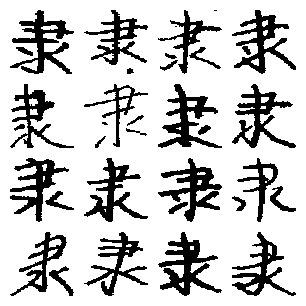 隶隶隶隶
隶隶隶隶
隶隶隶隶
隶隶隶隶